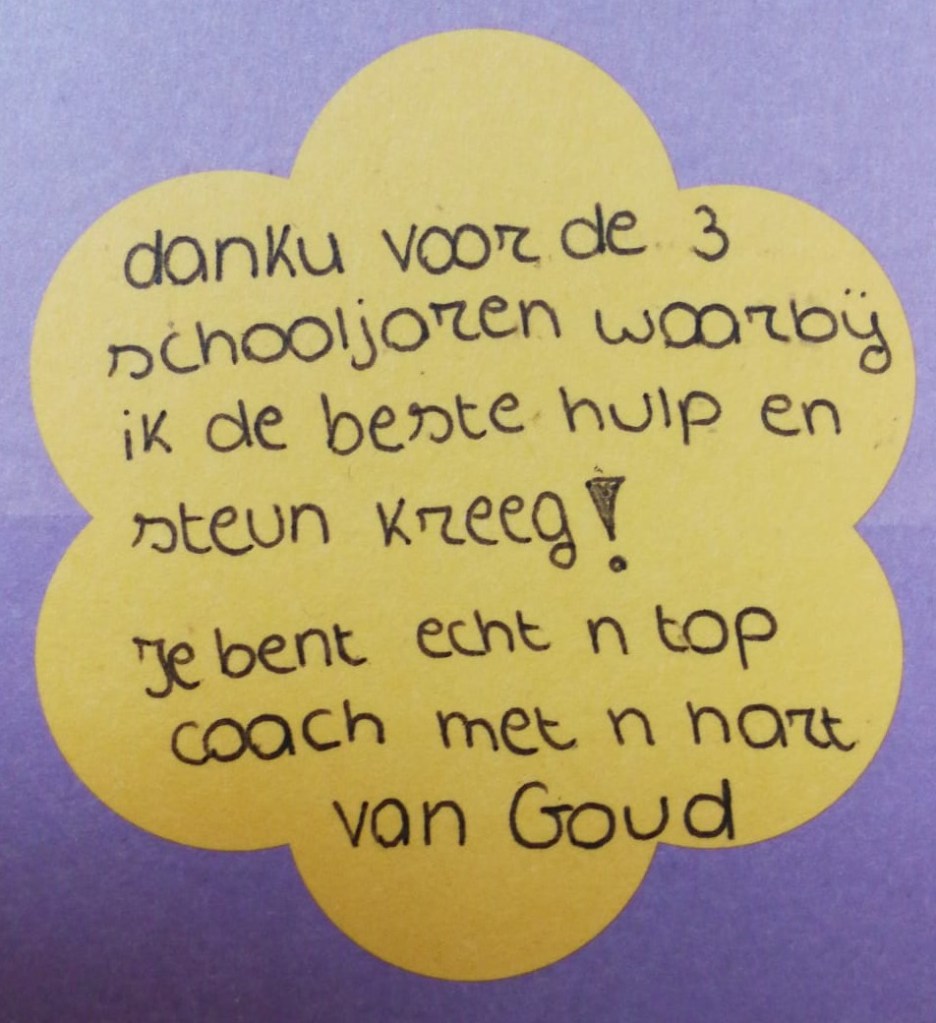 danku voor de 3
schooljaren waarbij
ik de beste hulp en
steun kreeg!
Je bent echt n top
coach met n hart
van Goud